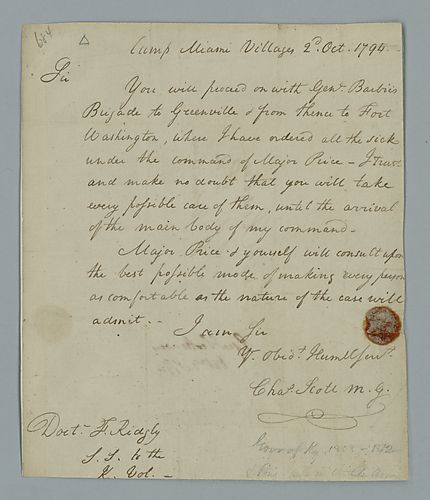 684
Camp Miami Villages 2d. Oct. 1794.
Sir
You will proceed on with Genl. Barbies
Brigade to Greenville & from thence to Fort
Washington, where I have ordered all the sick
under the command of Major Price – I trust
and make no doubt that you will take
every possible care of them, until the arrival
of the main body of my command –
Major Price & yourself will consult upon
the best possible mode of making every person
as comfortable as the nature of the case will
admit. –
I am Sir
Yr. Obidt. Humbl Servt.
Chas. Scott M. G.
Doctr. F. Ridgly
S. S. to the
K. Vol. –
Govr of Ky. 1808 – 1812